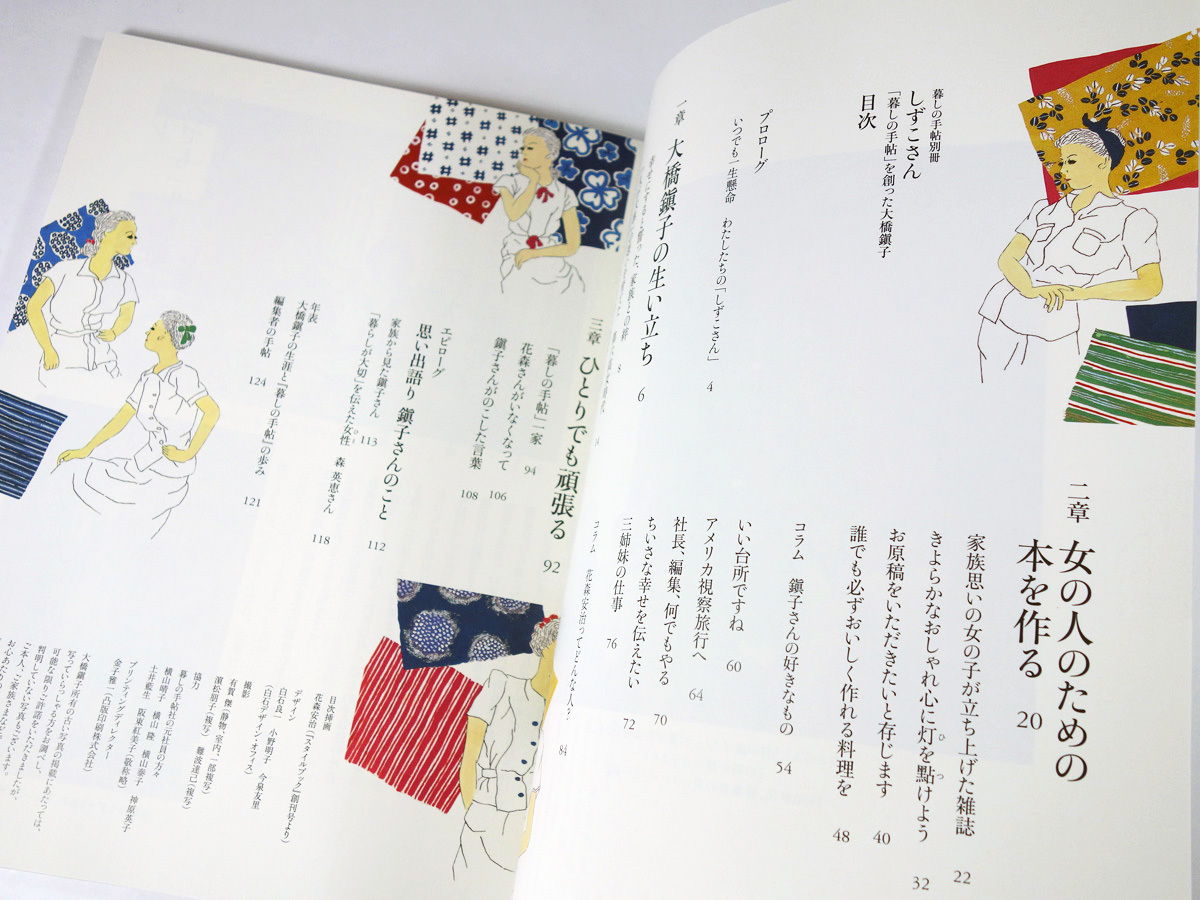 暮しの手帖別冊
しずこさん
「暮しの手帖」を創った大橋鎭子
目次
プロローグ
いつでも一生懸命 わたしたちの「しずこさん」 4
一章 大橋鎭子の生い立ち 6
8
二章 女の人のための
本を作る 20
家族思いの女の子が立ち上げた雑誌 22
きよらかなおしゃれ心に灯を點けよう 32
お原稿をいただきたいと存じます 40
誰でも必ずおいしく作れる料理を 48
コラム 鎭子さんの好きなもの 54
いい台所ですね 60
アメリカ視察旅行へ 64
社長、編集、何でもやる 70
ちいさな幸せを伝えたい 72
三姉妹の仕事 76
コラム 花森安治ってどんな人? 84
三章 ひとりでも頑張る 92
「暮しの手帖」一家 94
花森さんがいなくなって 106
鎭子さんがのこした言葉 108
エピローグ
思い出語り 鎭子さんのこと 112
家族から見た鎭子さん 113
「暮らしが大切」を伝えた女性 森 英恵さん 118
年表
大橋鎭子の生涯と『暮しの手帖』の歩み 121
編集者の手帖 124
目次挿画
花森安治(『スタイルブック』創刊号より)
デザイン
白石良一 小野明子 今泉友里
(白石デザイン・オフィス)
撮影
有賀 傑(静物、室内、一部複写)
濵松朋子(複写) 難波達己(複写)
協力
暮しの手帖社の元社員の方々
横山晴子 横山隆 横山泰子
土井藍生 阪東紅美子(敬称略) 神原英子
プリンティングディレクター
金子雅一(凸版印刷株式会社)
大橋鎭子所有の古い写真の掲載にあたっては、
写っていらっしゃる方をお調べし、
可能な限りご許諾をいただきましたが、
判明していない写真もございます。